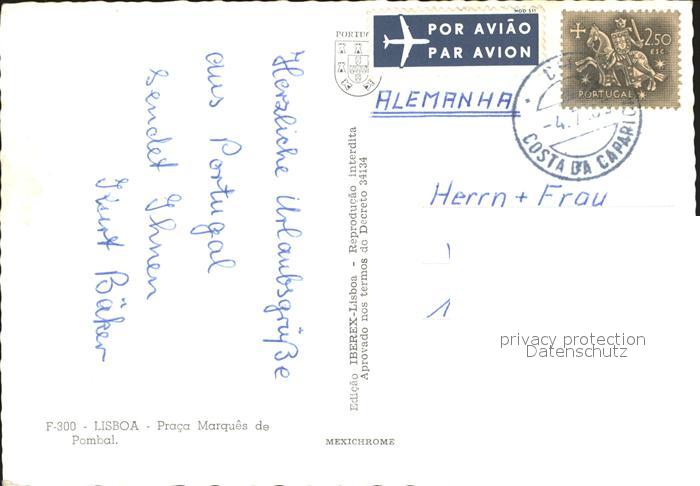 Herzliche Urlaubsgrüße
aus Portugal
sendet Ihnen
Kurt Bäker
F-300 - LISBOA - Praça Marquês de
Pombal.
Edição IBEREX-Lisboa - Reprodução interdita
Aprovado nos termos do Decreto 34134
MEXICHROME
MOD 511
POR AVIÃO
PAR AVION
2$50
ESC.
PORTUGAL
COSTA DA CAPARICA
ALEMANHA
Herrn + Frau
privacy protection
Datenschutz